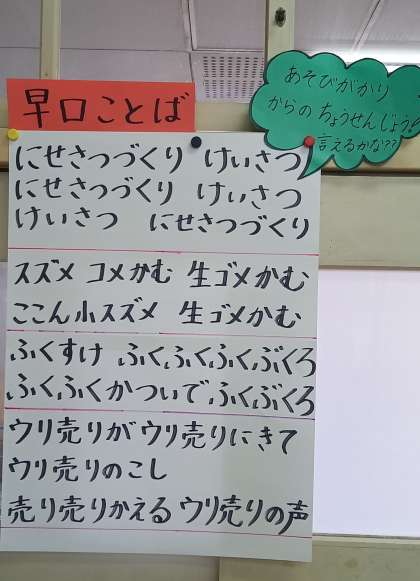 早口ことば
あそびがかり
からの ちょうせんじょう
言えるかな??
にせさつづくり けいさつ
にせさつづくり けいさつ
けいさつ にせさつづくり
スズメ コメかむ 生ゴメかむ
ここん小スズメ 生ゴメかむ
ふくすけ ふくふくふくぶくろ
ふくふくかついでふくぶくろ
ウリ売りがウリ売りにきて
ウリ売りのこし
売り売りかえる ウリ売りの声